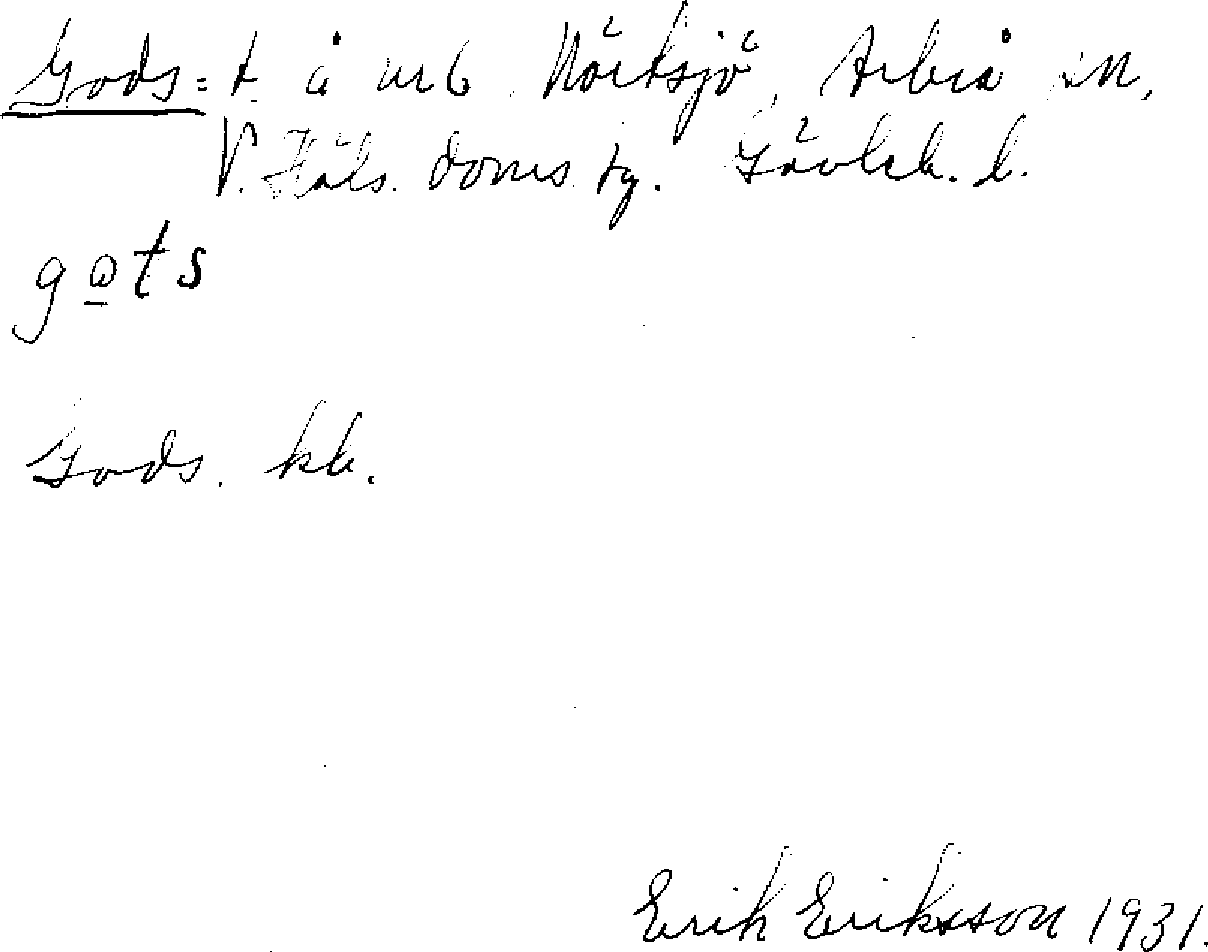 Gods: t. å nr 6 Nörtsjö, Arbrå sn,
V. Häls. doms. tg. Gävleb. l.
gɷts
Gods. kb.
Erik Eriksson 1931.